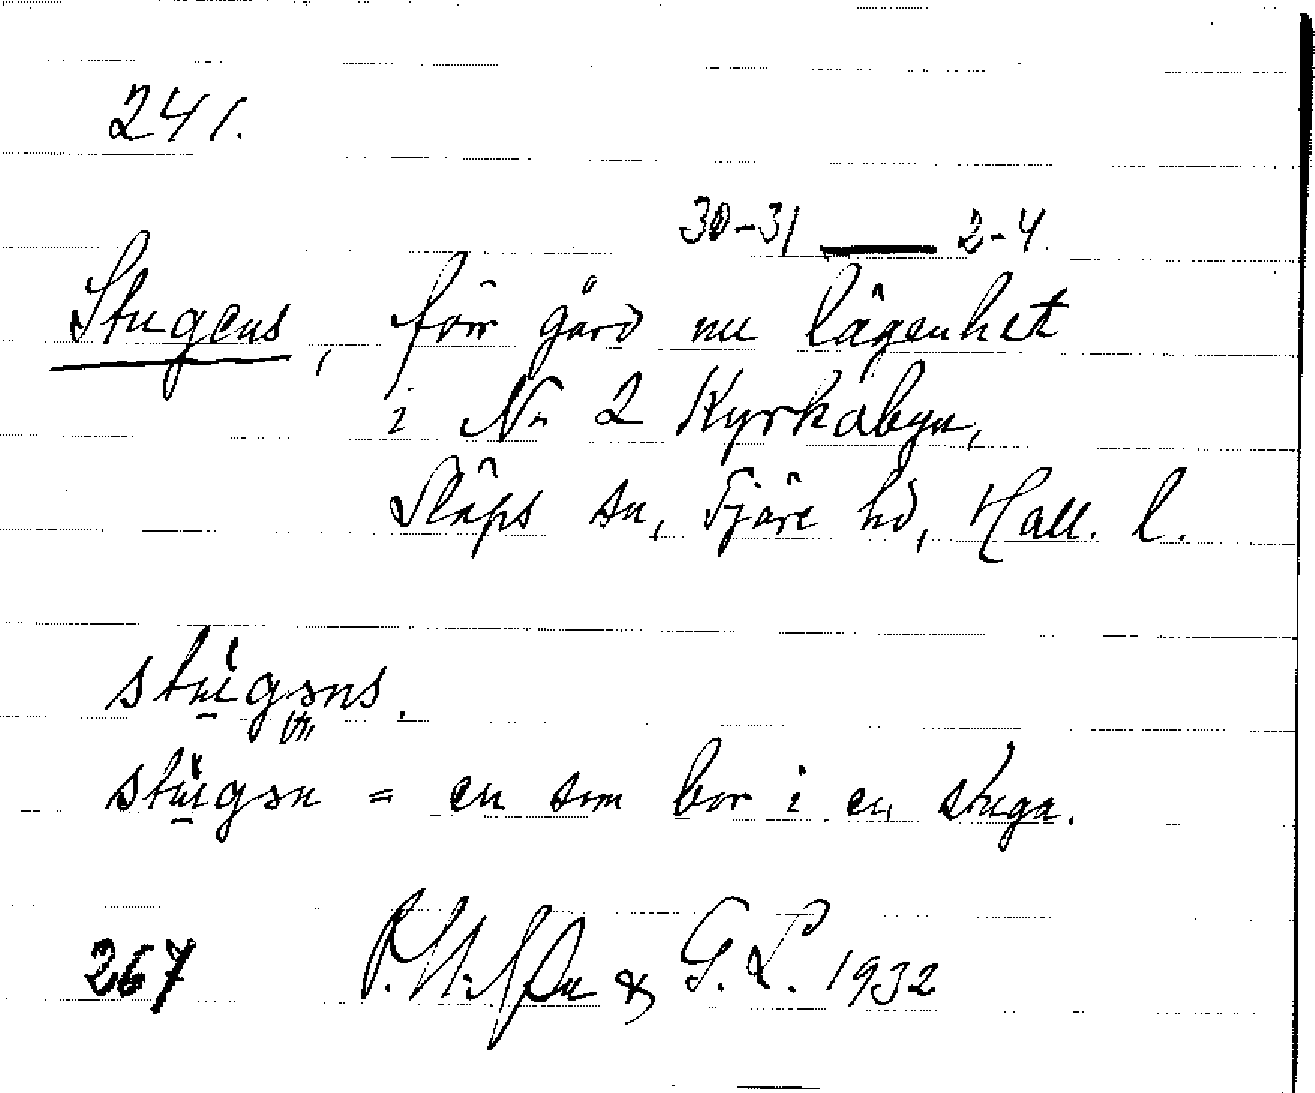 241.
30-31 — 2-4.
Stugens, förr gård nu lägenhet
i Nr 2 Kyrkobyn,
Släps sn, Fjäre hd, Hall. l.
stu̠gəns.
stu̠gən = en som bor i en stuga.
267 & G. L. 1932